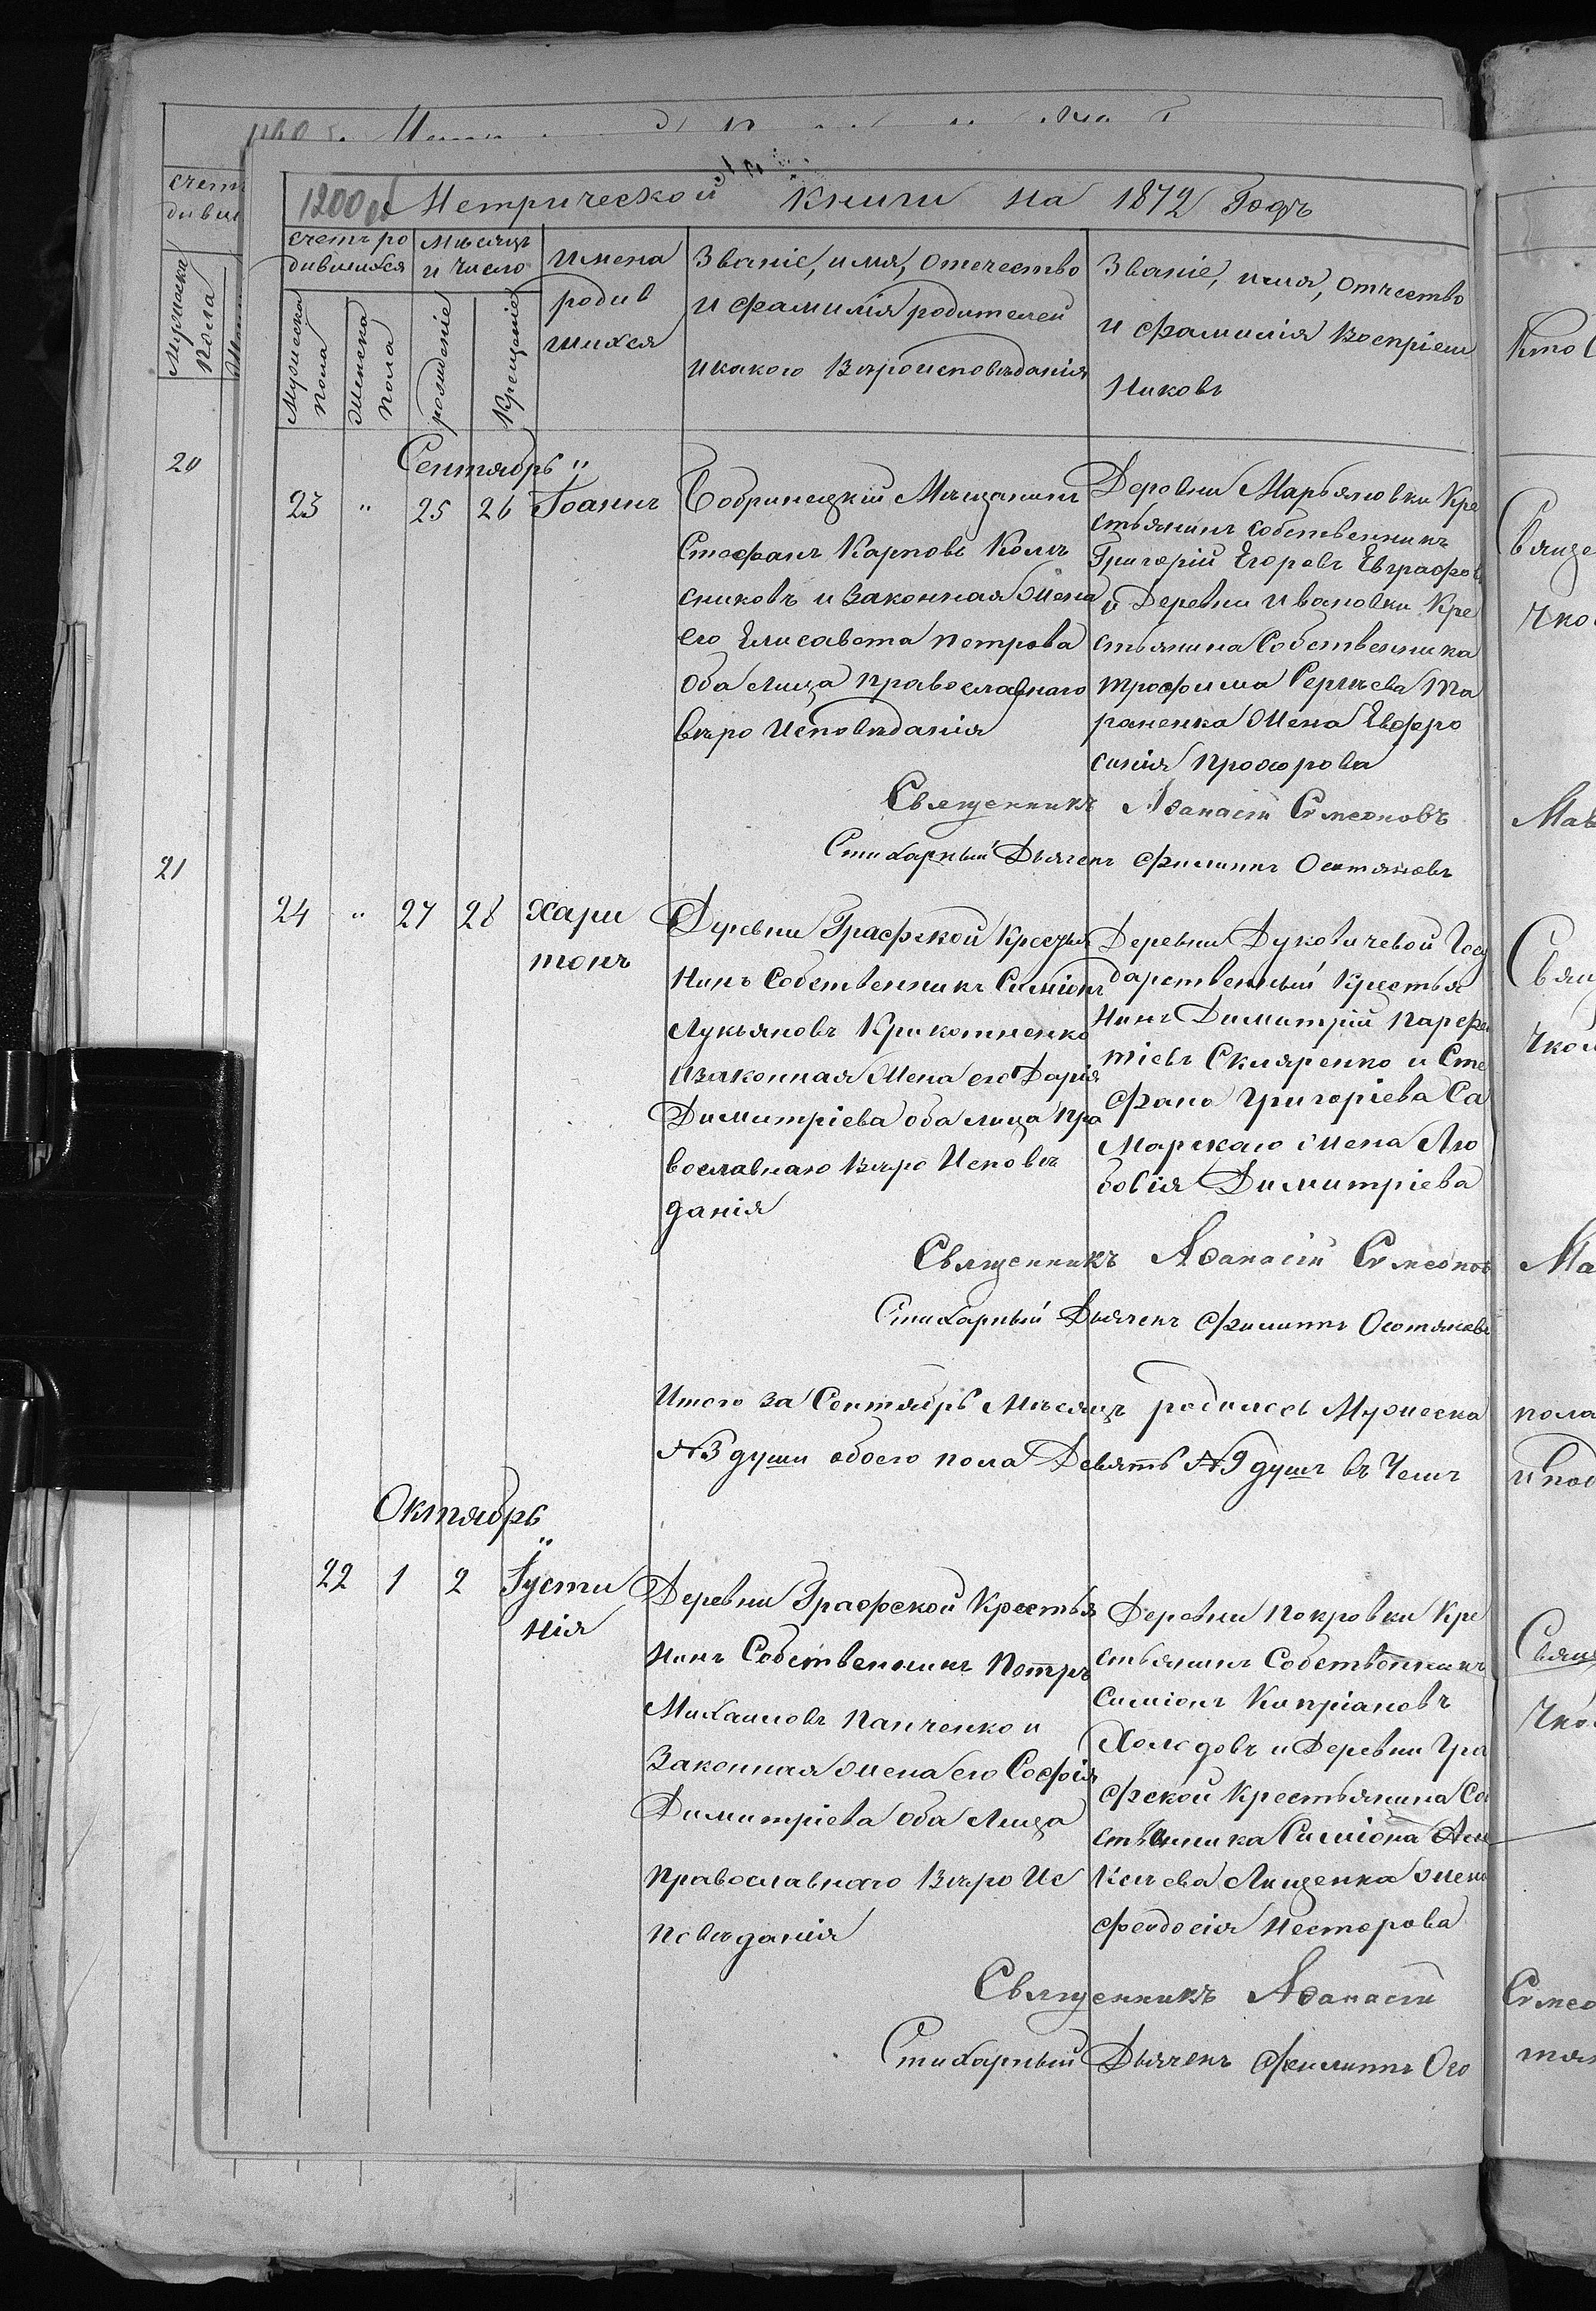 1200 об Метрической книги на 1872 Годъ
счетъ ро
дившихся
Мѣсяцъ
и число
Имена
родив
шихся
Званіе, имя, отечество
и фамилія родителей
и какого вѣроисповѣданія
Званіе, имя, отчество
и фамилія воспріем
никовъ
Мужеска
пола
Женска
пола
рожденіе
Крещеніе
Сентябрь
23 " 25 26 Іоаннъ
Бобринецкій Мѣщанинъ
Стефанъ Карповъ Колѣ
сниковъ и законная жена
его Елисавета Петрова
оба лица православнаго
вѣро Исповѣданія
Деревни Марьяновки Кре
стьянинъ собственникъ
Григорій Егоровъ Евграфов
и Деревни Ивановки Кре
стьянина Собственника
Трофима Сергѣева Та
раненка жена Евфро
синія Прохорова
Священникъ Аѳанасій Симеоновъ
Стихарный Дьячекъ Филиппъ
24 " 27 28 Хари
тонъ
Деревни Графской Крестья
нинъ Собственникъ Симіонъ
Лукьяновъ Крикотненко
и законная жена его Дарія
Димитріева оба лица пра
вославнаго вѣро Исповѣ
данія
Деревни Дуковичевой Госу
дарственный Крестья
нинъ Димитрій Парфен
тіевъ Скляренко и Сте
фана Григоріева Са
марскаго жена Лю
бовія Димитріева
Священникъ Аѳанасій Симеонов
Стихарный Дьячекъ Филиппъ
Итого за Сентябрь Мѣсяцъ родилось Мужеска
№3 души обоего пола Девять №9 душъ въ Чемъ
Октябрь
22 1 2 Іусти
нія
Деревни Графской Крестья
нинъ Собственникъ Петръ
Михаиловъ Панченко и
Законная жена его Софія
Димитріева оба Лица
Православнаго Вѣро Ис
повѣданія
Деревни Покровки Кре
стьянинъ Собственникъ
Симіонъ Кипріановъ
Холодовъ и Деревни Гра
фской Крестьянина Со
ственника Симіона Але
ксѣева Лященка жена
Феодосія Нестерова
Священникъ Аѳанасій
Стихарный Дьячекъ Филиппъ
20
21